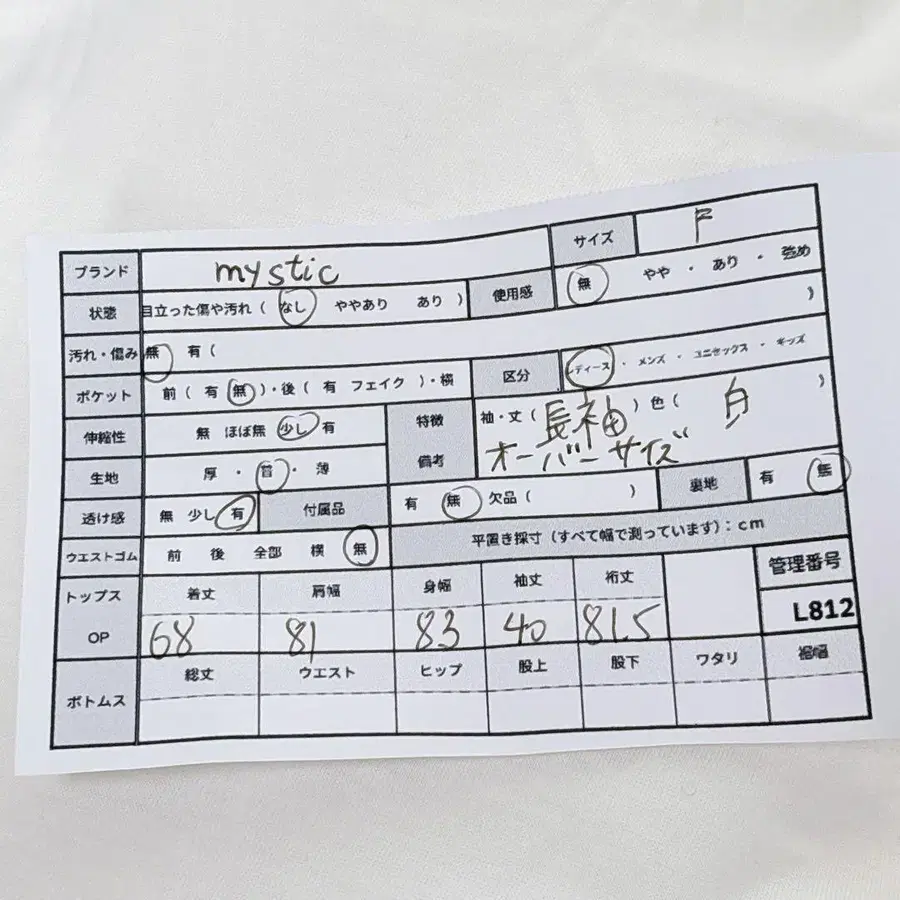 ブランド mystic サイズ F
状態 目立った傷や汚れ ( なし ややあり あり ) 使用感 無 やや ・ あり ・ 強め
汚れ・傷み 無 有 ( )
ポケット 前 ( 有 無 )・後 ( 有 フェイク )・横 区分 レディース ・ メンズ ・ ユニセックス ・ キッズ
伸縮性 無 ほぼ無 少し 有 特徴 袖・丈 ( 長袖 ) 色 ( 白 )
生地 厚 ・ 普 ・ 薄 備考 オーバーサイズ
透け感 無 少し 有 付属品 有 無 欠品 ( ) 裏地 有 無
ウエストゴム 前 後 全部 横 無 平置き採寸 (すべて幅で測っています) : cm
トップス 着丈 肩幅 身幅 袖丈 裄丈 管理番号
OP 68 81 83 40 81.5 L812
ボトムス 総丈 ウエスト ヒップ 股上 股下 ワタリ 裾幅